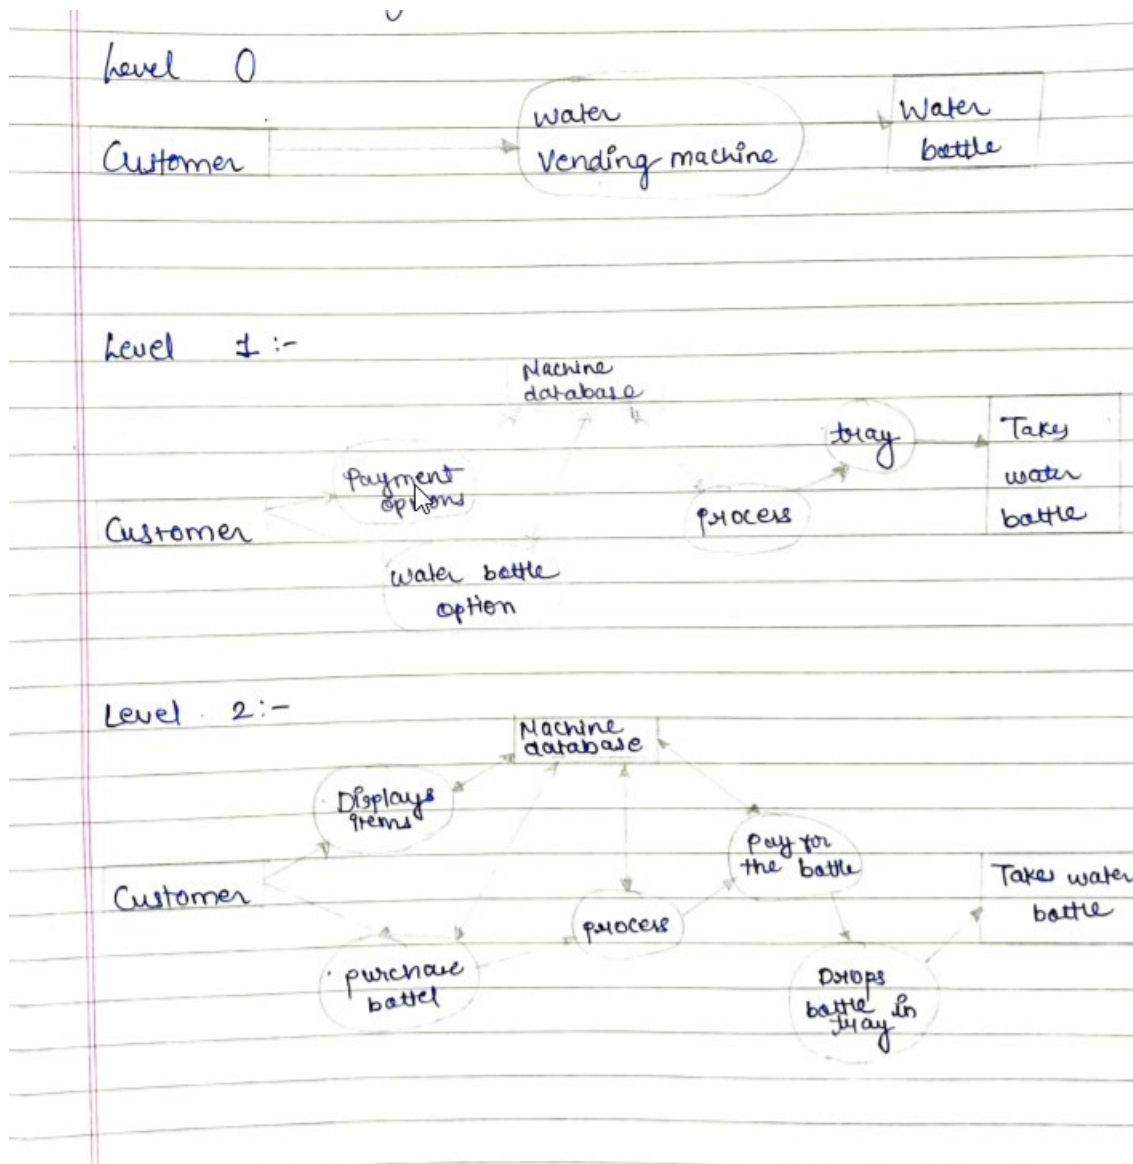 Level 0
Customer
Water
Vending machine
Water
bottle
Level 1 :-
Machine
database
Payment
options
Customer
water bottle
option
process
tray
Takes
water
bottle
Level 2:-
Machine
database
Displays
items
Customer
purchase
bottel
process
Pay for
the bottle
Drops
bottle in
tray
Takes water
bottle